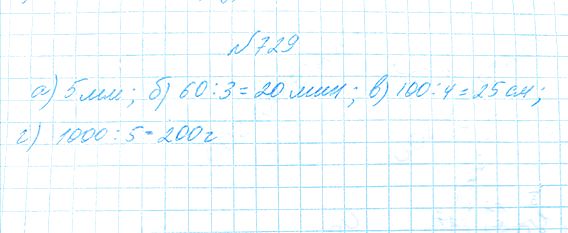 №729
а) 5 мм; б) 60:3=20 мин; в) 100:4=25 см;
г) 1000:5=200 г